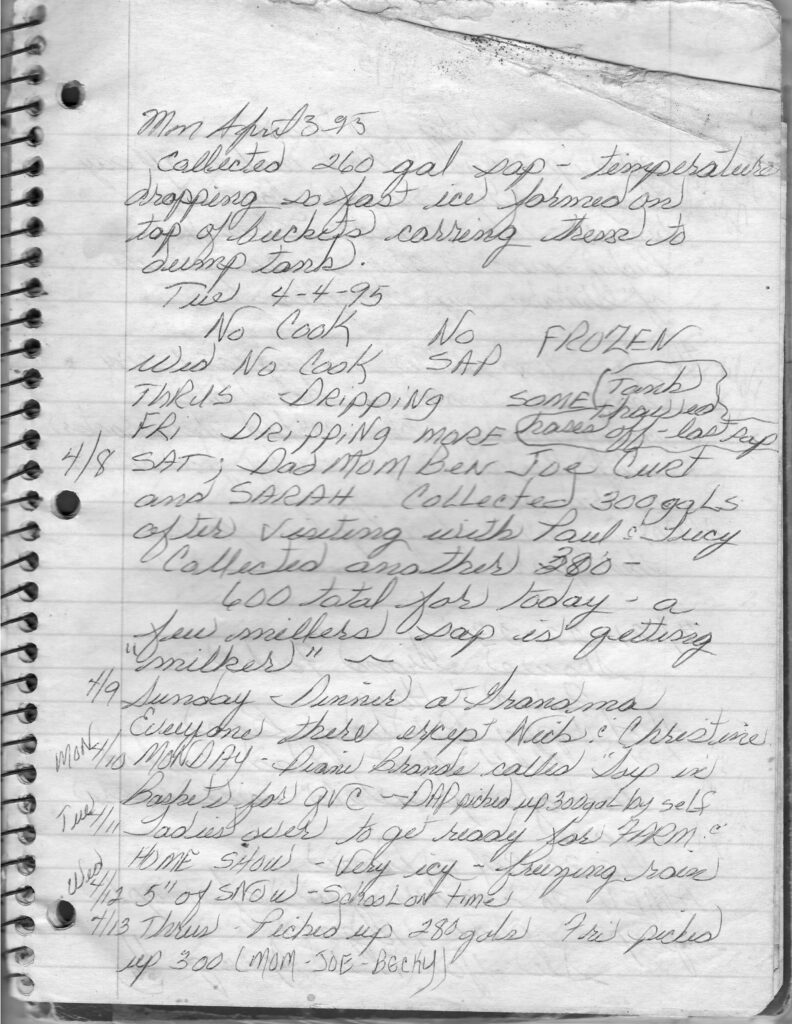 Mon April 3-95
Collected 260 gal sap - temperature
dropping so fast ice formed on
top of buckets carring them to
dump tank.
Tue 4-4-95
No Cook No FROZEN
Wed No Cook SAP
THRUS DRIPPING SOME (Tank
thawed
FRI DRIPPING MORE hoses off - last sap
4/8 SAT; Dad MOM BEN Joe Curt
and SARAH Collected 300 gals
after visiting with Paul & Lucy
Collected another 380 -
600 total for today - a
few millers sap is getting
"milker" ~
4/9 Sunday - Dinner at Grandma
Everyone there except Nick & Christine
MON 4/10 MONDAY - Diane called "Sap in
Baskets for QVC - DAD picked up 300 gal by self
Tue 4/11 Ladies over to get ready for FARM &
HOME SHOW - Very icy - frezing rain
Wed 4/12 5" of SNOW - School on time
4/13 Thrus - Picked up 280 gals Fri picked
up 300 (MOM - JOE - BECKY)